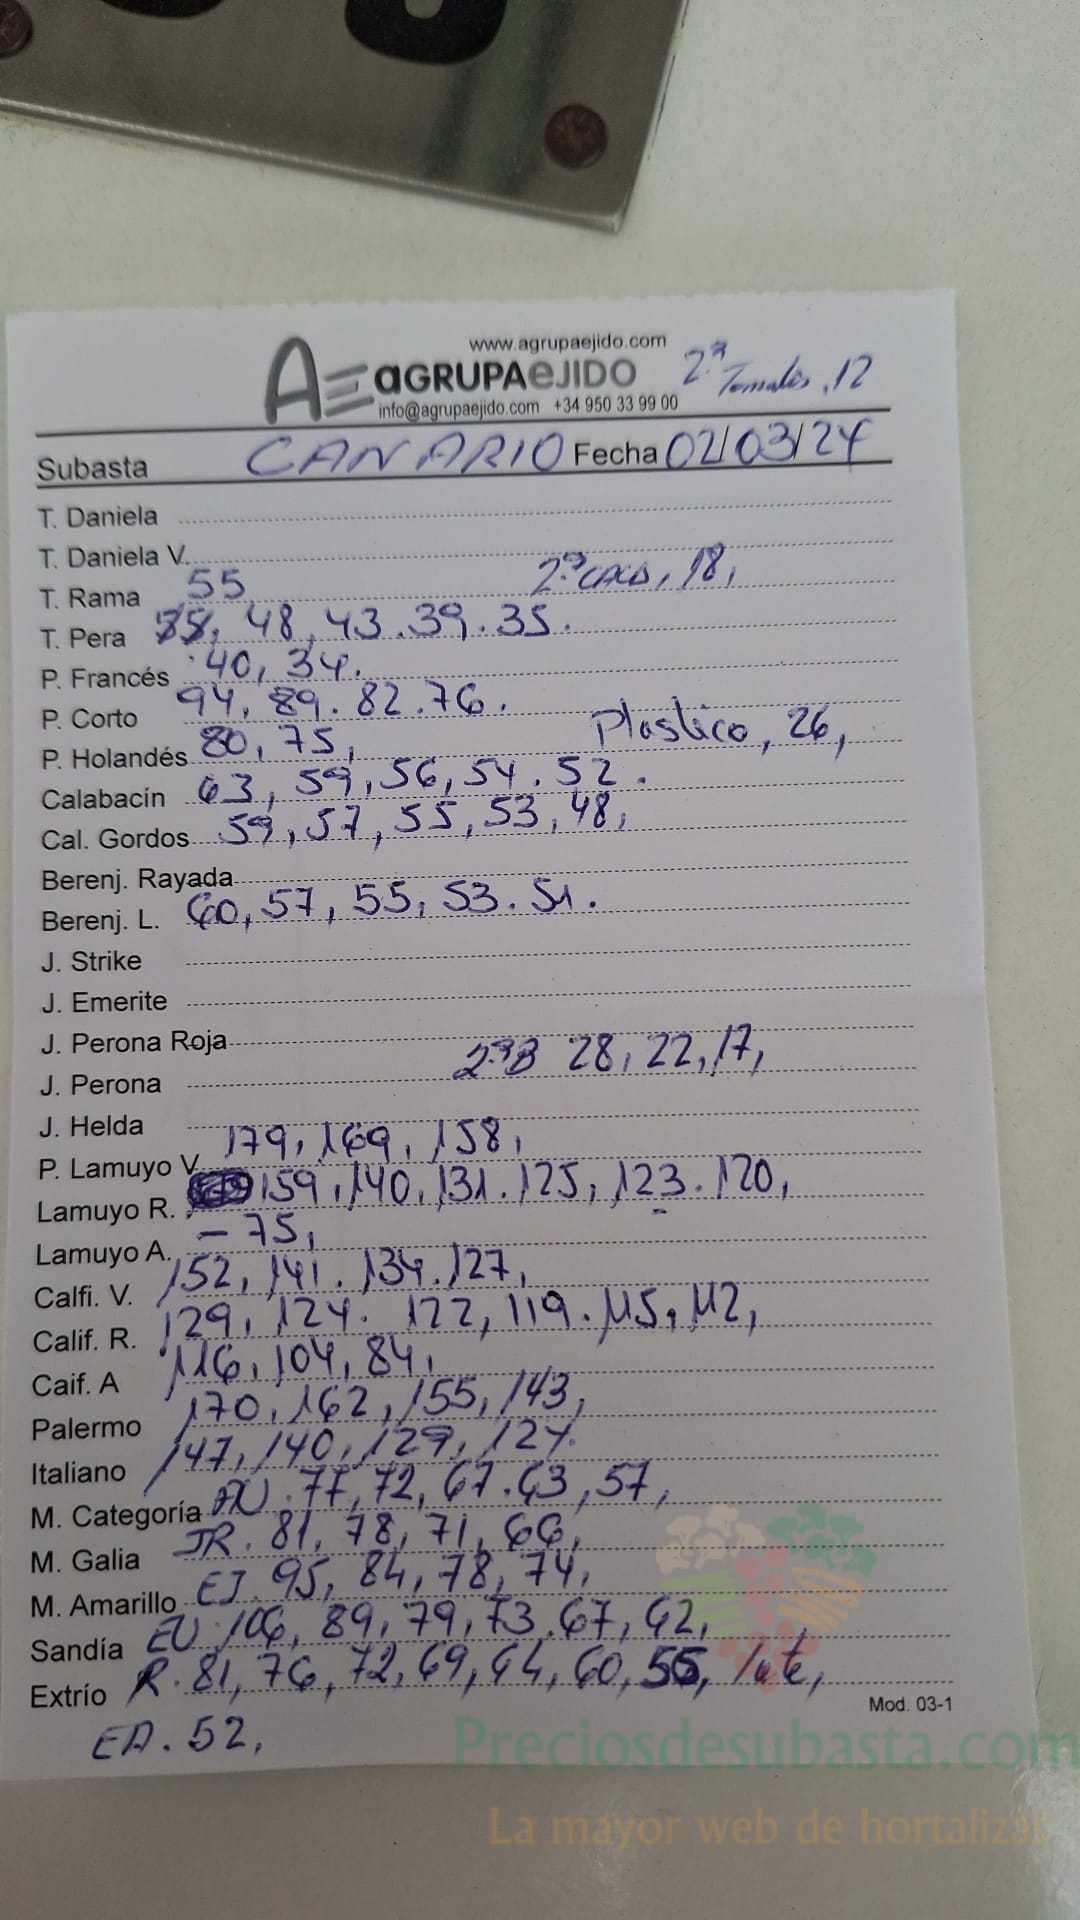 www.agrupaejido.com
AE aGRUPAeJIDO 2.ª Tomates, 12
info@agrupaejido.com +34 950 33 99 00
Subasta CANARIO Fecha 02/03/24
T. Daniela
T. Daniela V.
T. Rama 55 2.ª 18,
T. Pera 55, 48, 43. 39. 35.
P. Francés 40, 34.
P. Corto 94, 89. 82. 76.
P. Holandés 80, 75, Plastico, 26,
Calabacín 63, 59, 56, 54. 52.
Cal. Gordos 59, 57, 55, 53, 48,
Berenj. Rayada
Berenj. L. 60, 57, 55, 53. 51.
J. Strike
J. Emerite
J. Perona Roja
J. Perona 2.ªB 28, 22, 17,
J. Helda
P. Lamuyo V. 179, 169, 158,
Lamuyo R. 159, 140, 131. 125, 123. 120,
Lamuyo A. – 75,
Calfi. V. 152, 141. 134. 127,
Calif. R. 129, 124. 122, 119. 115, 112,
Caif. A 116, 104, 84,
Palermo 170, 162, 155, 143,
Italiano 147, 140, 129, 124.
M. Categoría AU. 77, 72, 67. 63, 57,
M. Galia JR. 81, 78, 71, 66,
M. Amarillo EJ. 95, 84, 78, 74,
Sandía EU. 106, 89, 79, 73. 67, 62,
Extrío R. 81, 76, 72, 69, 64, 60, 56, lute,
Mod. 03-1
EA. 52,
Preciosdesubasta.com
La mayor web de hortalizas